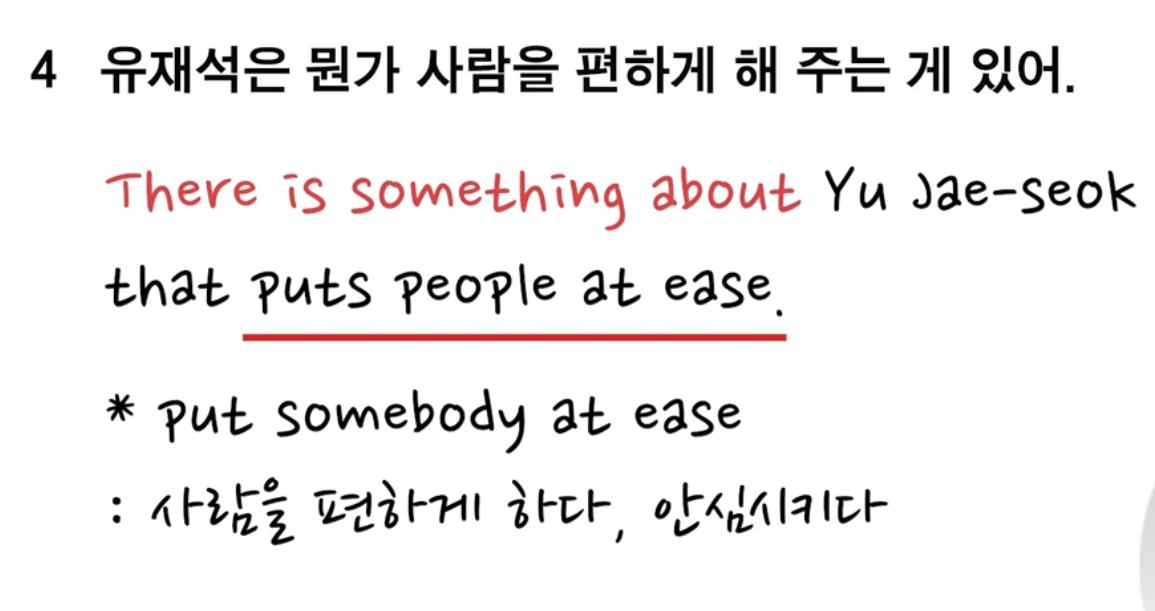 4 유재석은 뭔가 사람을 편하게 해 주는 게 있어.
There is something about Yu Jae-seok
that puts people at ease.
* put somebody at ease
: 사람을 편하게 하다, 안심시키다